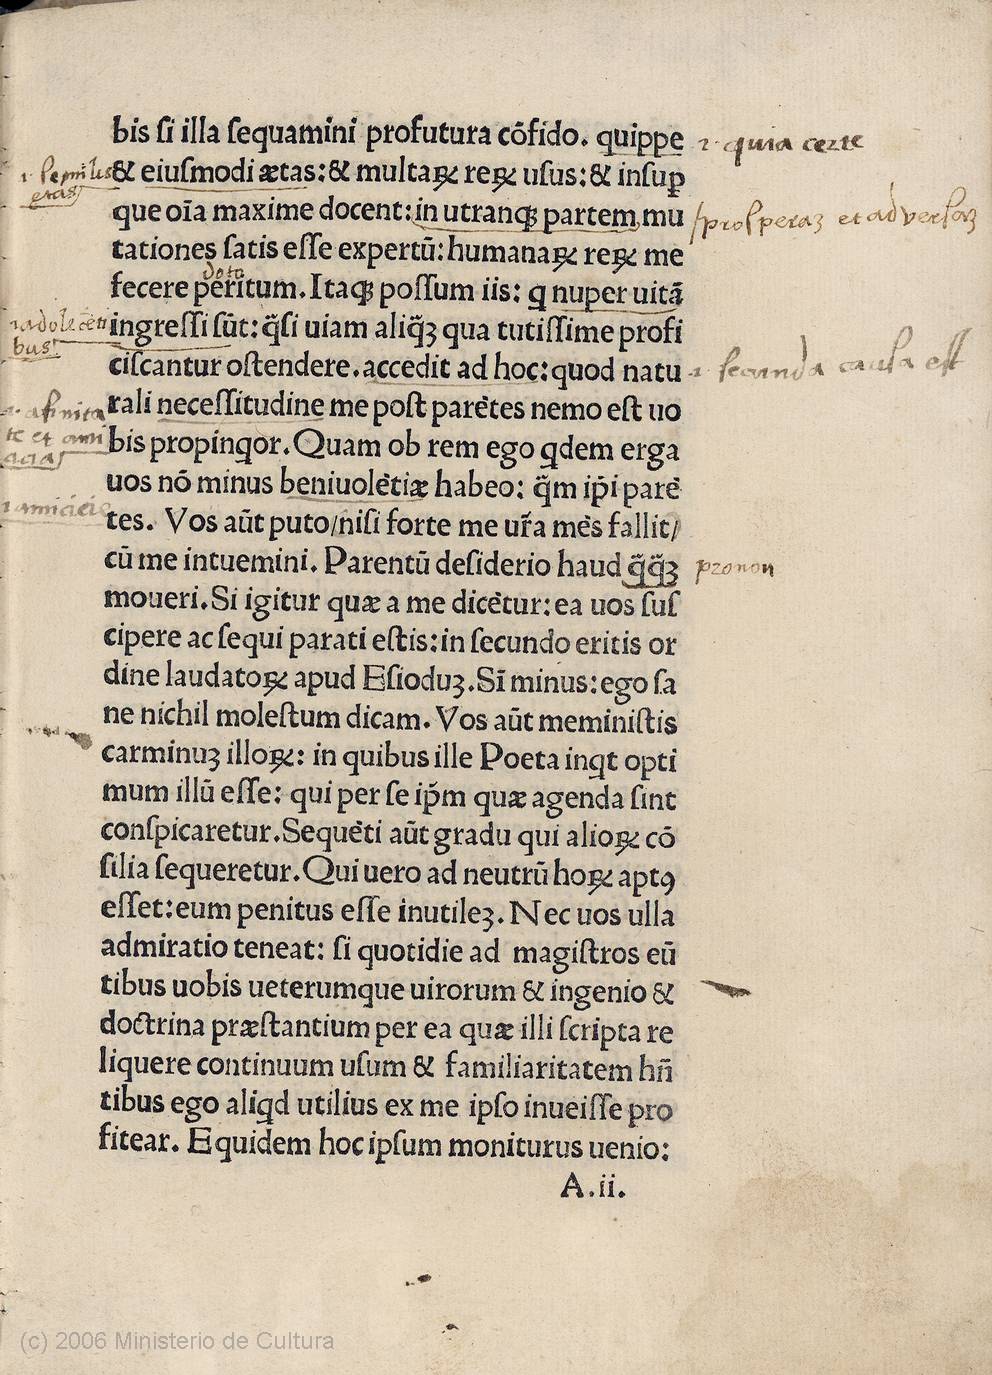 bis ſi illa ſequamini profutura cōfido. quippe
ꝛ quia certe
& eiuſmodi ætas:& multaꝝ reꝝ uſus:& inſuꝑ
que oīa maxime docent:in utranqꝫ partem mu
proſperaꝫ et adverſaꝫ
tationes ſatis eſſe expertū:humanaꝝ reꝝ me
fecere peritum.Itaqꝫ poſſum iis: q̄ nuper uitā
ingreſſi ſūt:q̄ſi uiam aliq̄ꝫ qua tutiſſime profi
bus
ciſcantur oſtendere.accedit ad hoc:quod natu
ſecunda cauſa eſt
rali neceſſitudine me poſt parētes nemo eſt uo
bis propinqor.Quam ob rem ego qdem erga
uos nō minus beniuolētiæ habeo: q̄m ip̄i parē
tes. Vos aūt puto/niſi forte me ur̄a mēs fallit/
cū me intuemini. Parentū deſiderio haud q̄q̄ꝫ
pronon
moueri.Si igitur quæ a me dicētur:ea uos ſuſ
cipere ac ſequi parati eſtis:in ſecundo eritis or
dine laudatoꝝ apud Eſioduꝫ.Sī minus:ego ſa
ne nichil moleſtum dicam. Vos aūt meminiſtis
carminuꝫ illoꝝ: in quibus ille Poeta inqt opti
mum illū eſſe: qui per ſe ip̄m quæ agenda ſint
conſpicaretur.Sequēti aūt gradu qui alioꝝ cō
ſilia ſequeretur.Qui uero ad neutrū hoꝝ aptꝯ
eſſet:eum penitus eſſe inutileꝫ. Nec uos ulla
admiratio teneat: ſi quotidie ad magiſtros eū
tibus uobis ueterumque uirorum & ingenio &
doctrina præſtantium per ea quæ illi ſcripta re
liquere continuum uſum & familiaritatem hn̄
tibus ego aliqd utilius ex me ipſo inueiſſe pro
fitear. Equidem hoc ipſum moniturus uenio:
A.ii.
(c) 2006 Ministerio de Cultura